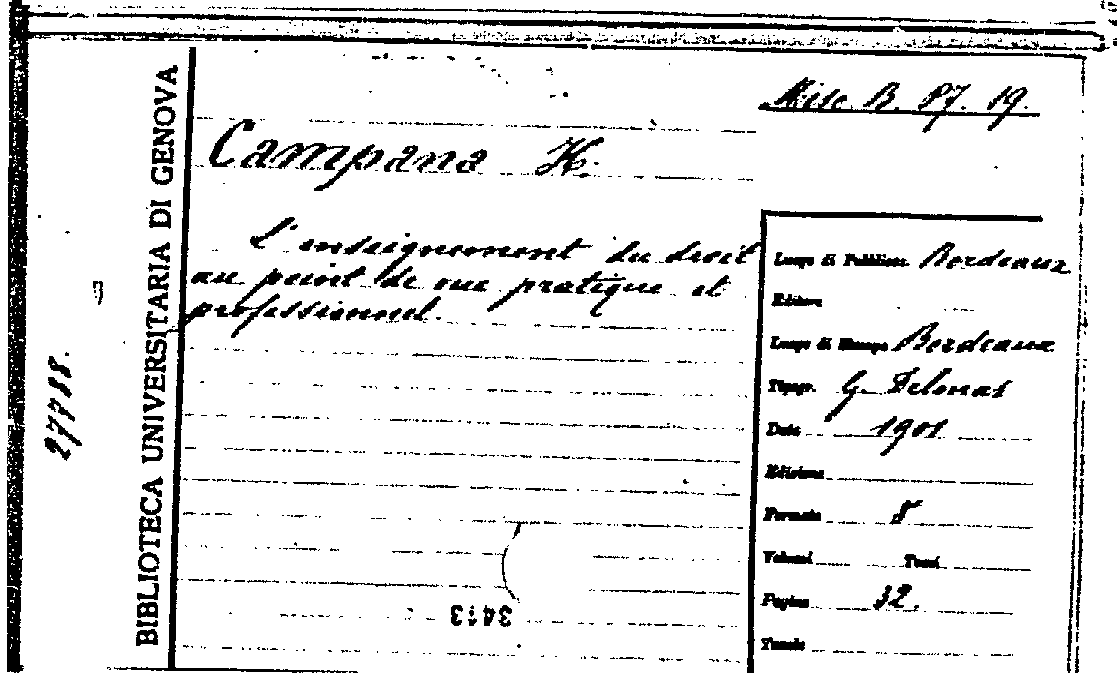 Misc. B. 87. 19.
Campana H.
L'enseignement du droit
au point de vue pratique et
professionnel.
BIBLIOTECA UNIVERSITARIA DI GENOVA
Luogo di Pubblicaz. Bordeaux
Editore
Luogo di Stampa Bordeaux
Tipogr. G. Delmas
Data 1901
Edizione
Formato 8
Volumi Tomi
Pagine 32.
Tavole